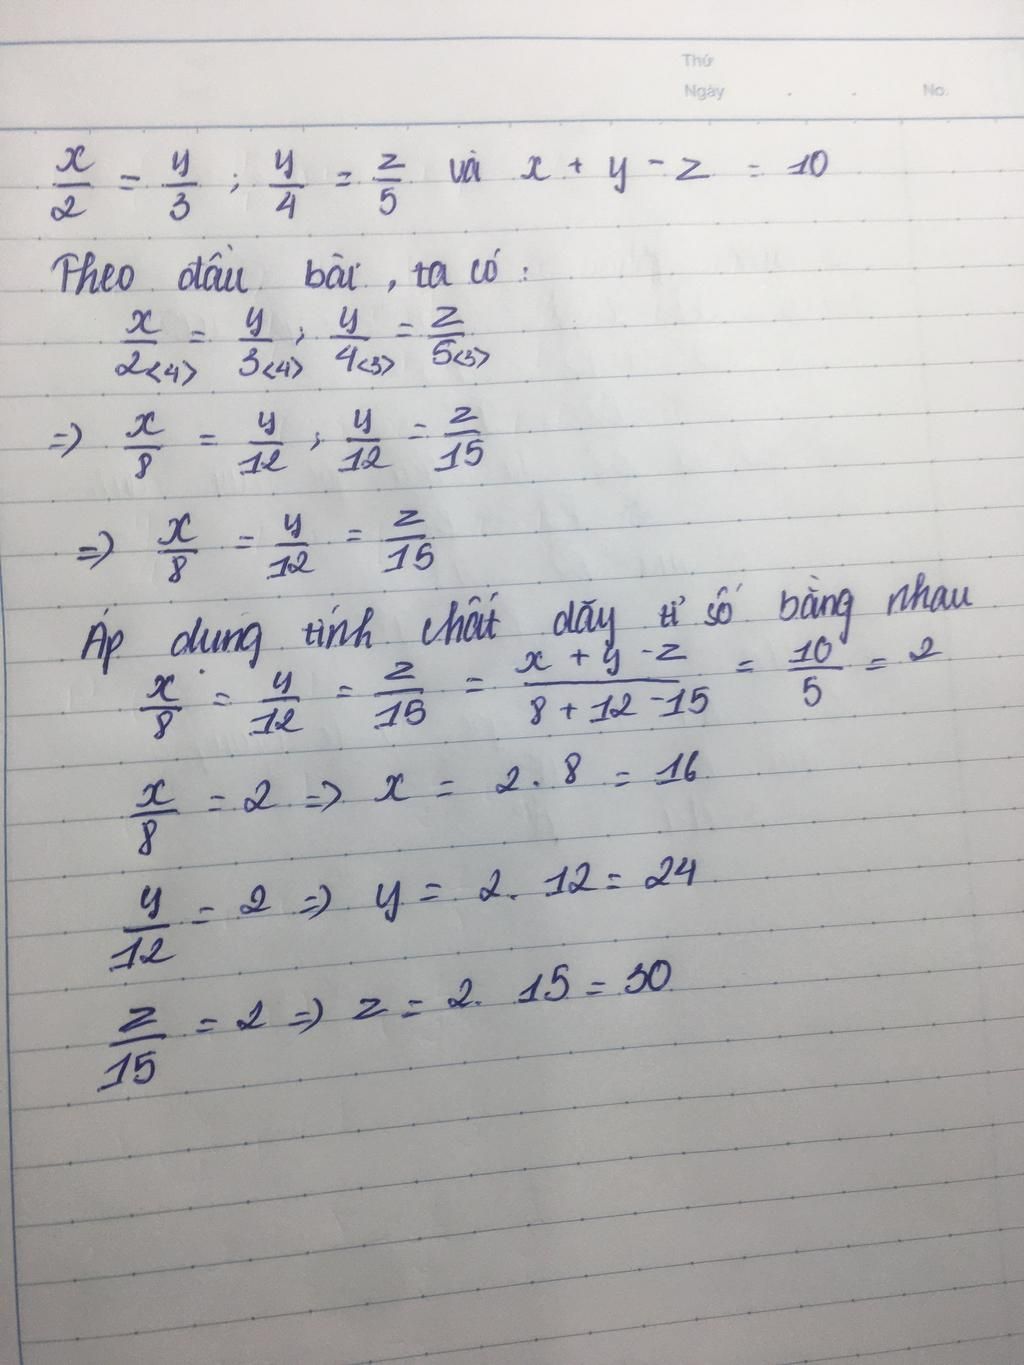 Thứ
Ngày . . No.
x/2 = y/3 ; y/4 = z/5 và x + y - z = 10
Theo đầu bài, ta có :
x/2<4> = y/3<4> ; y/4<3> = z/5<3>
=> x/8 = y/12 ; y/12 = z/15
=> x/8 = y/12 = z/15
Áp dụng tính chất dãy tỉ số bằng nhau
x/8 = y/12 = z/15 = (x + y - z)/(8 + 12 - 15) = 10/5 = 2
x/8 = 2 => x = 2 . 8 = 16
y/12 = 2 => y = 2 . 12 = 24
z/15 = 2 => z = 2 . 15 = 30